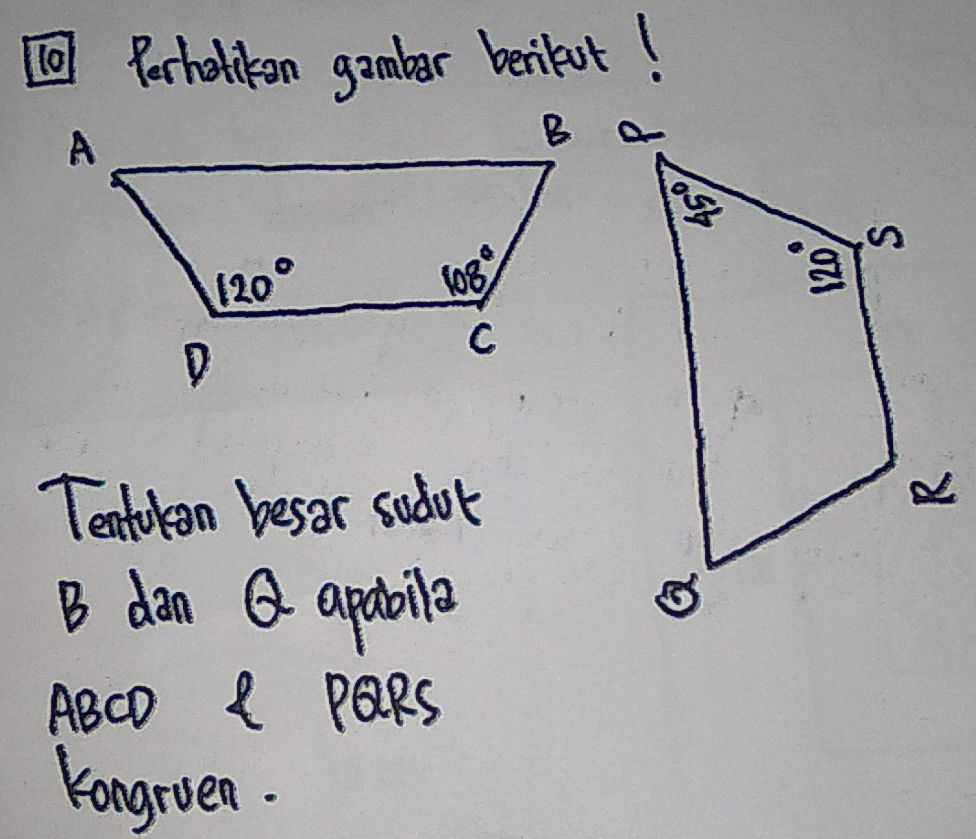 10 Perhatikan gambar berikut !
A B
120° 108°
D C
P
45°
120°
S
R
Q
Tentukan besar sudut
B dan Q apabila
ABCD & PQRS
kongruen.